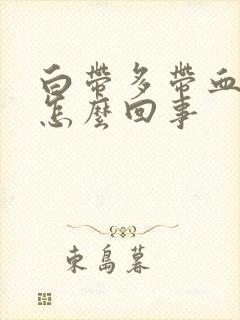 白帶多帶血
怎麼回事
東島暮